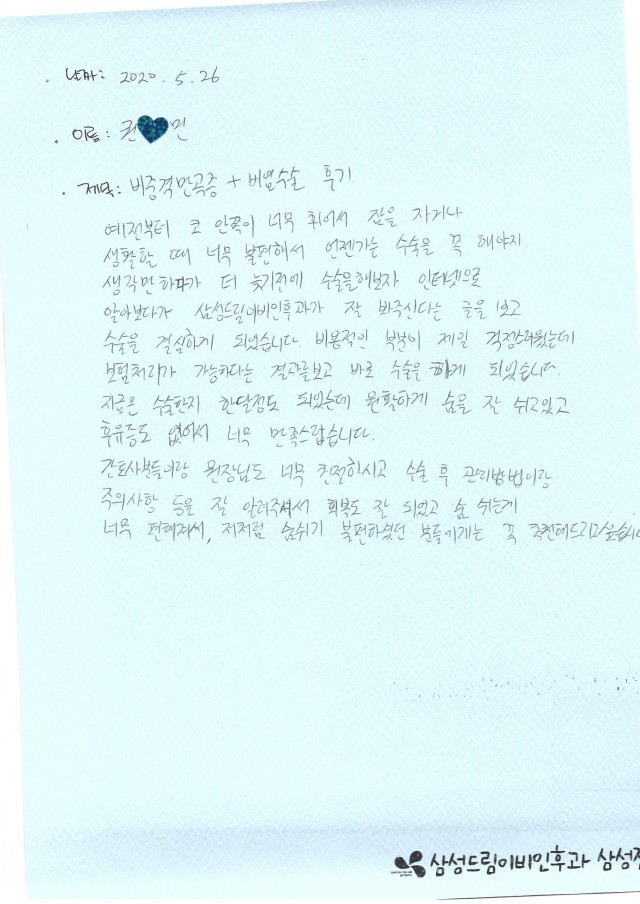 . 날짜: 2020. 5. 26
. 이름: 권 민
. 제목: 비중격만곡증 + 비염수술 후기
예전부터 코 안쪽이 너무 휘어서 잠을 자거나
생활할 때 너무 불편해서 언젠가는 수술을 꼭 해야지
생각만하다가 더 늦기전에 수술을해보자 인터넷으로
알아보다가 삼성드림이비인후과가 잘 봐주신다는 글을 보고
수술을 결심하게 되었습니다. 비용적인 부분이 제일 걱정스러웠는데
보험처리가 가능하다는 결과를보고 바로 수술을 하게 되었습니다.
지금은 수술한지 한달정도 되었는데 원활하게 숨을 잘 쉬고있고
후유증도 없어서 너무 만족스럽습니다.
간호사분들이랑 원장님도 너무 친절하시고 수술 후 관리방법이랑
주의사항 등을 잘 알려주셔서 회복도 잘 되었고 숨 쉬는게
너무 편해져서, 저처럼 숨쉬기 불편하셨던 분들에게는 꼭 추천해드리고싶습니
삼성드림이비인후과 삼성